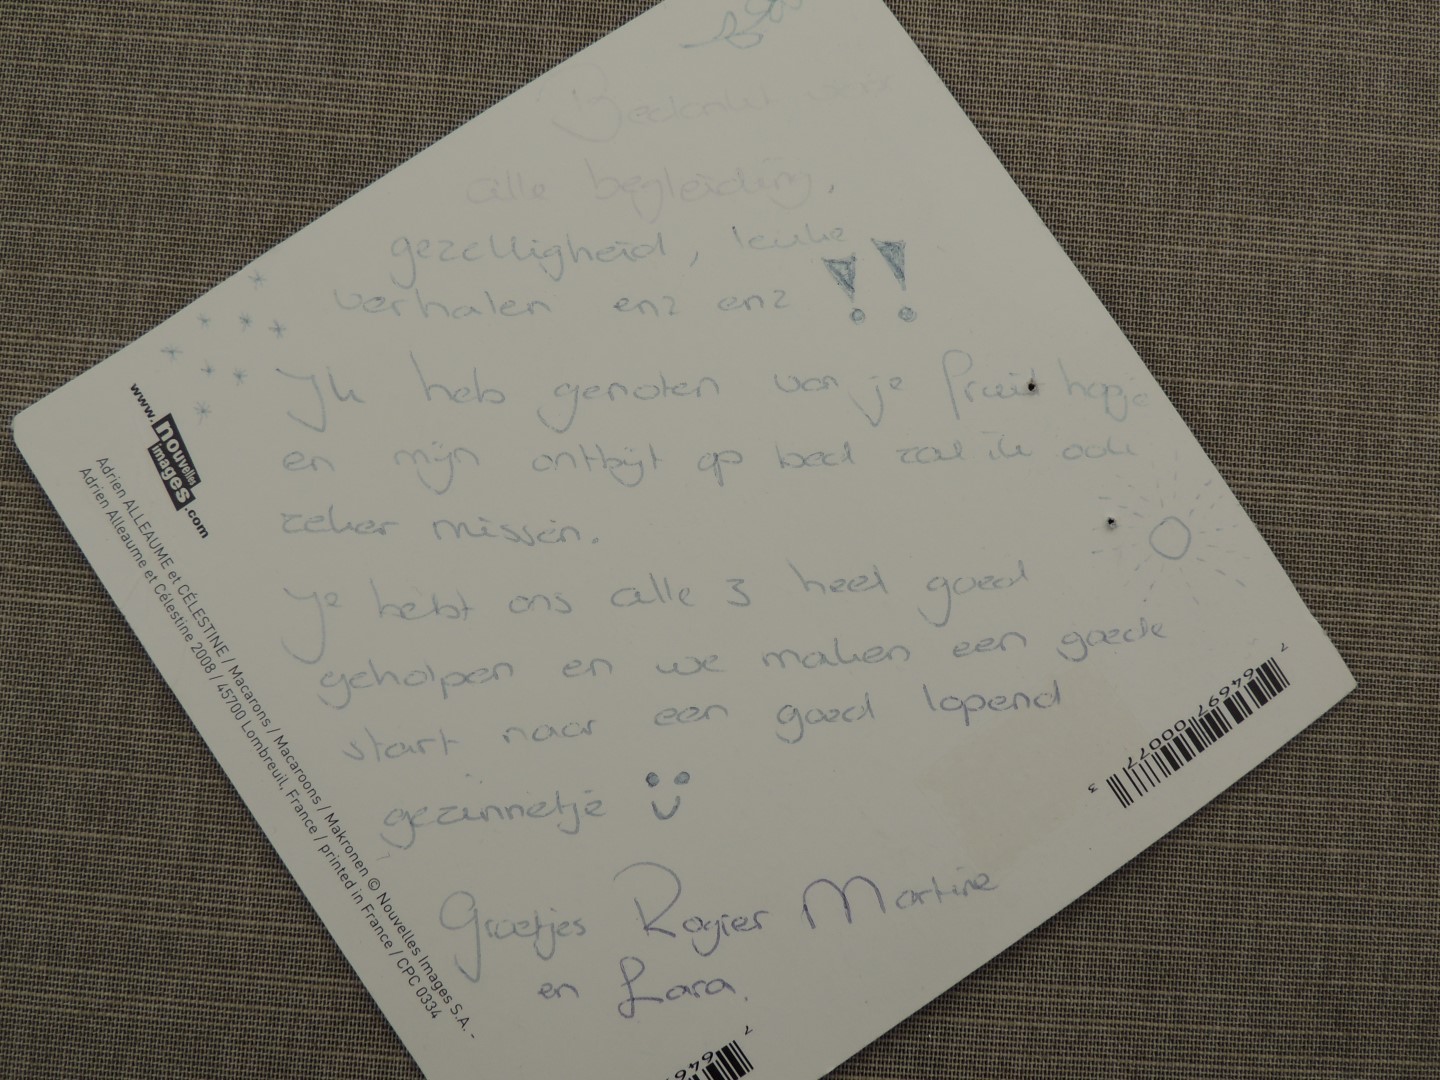 Bedankt voor
alle begleiding,
gezelligheid, leuke
verhalen enz enz !!
Ik heb genoten van je fruit hapje
en mijn ontbijt op bed zal ik ook
zeker missen.
Je hebt ons alle 3 heel goed
geholpen en we maken een goede
start naar een goed lopend
gezinnetje
Groetjes Rogier Martine
en Lara.
www.nouvelles
images.com
Adrien ALLEAUME et CÉLESTINE / Macarons / Macaroons / Makronen © Nouvelles Images S.A. -
Adrien Alleaume et Célestine 2008 / 45700 Lombreuil, France / printed in France / CPC 0334
7 64697 00077 3
7 646